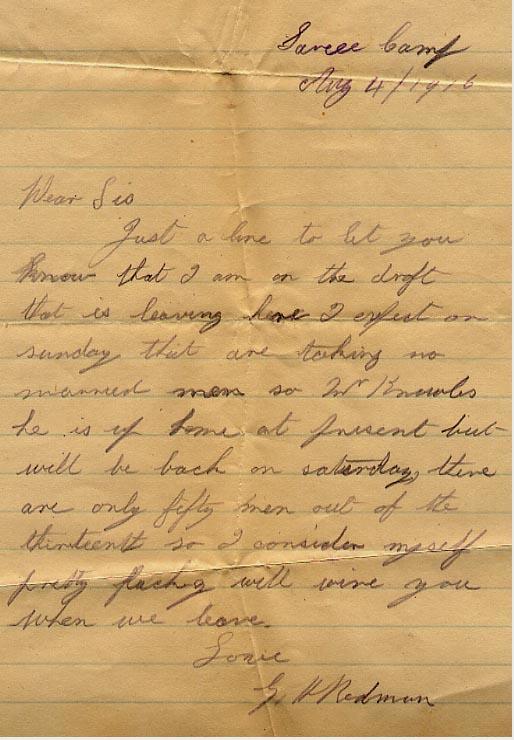 Sarcee Camp
Aug 4/1916
Dear Sis
Just a line to let you
know that I am on the draft
that is leaving here I expect on
sunday that are taking no
married men so Mr Knowles
he is up home at present but
will be back on saturday, there
are only fifty men out of the
thirteenth so I consider myself
pretty will wire you
when we leave.
Love
G H Redman